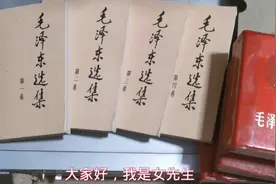 毛泽东选集
第一卷
毛泽东选集
第二卷
毛泽东选集
第三卷
毛泽东选集
第四卷
毛泽
大家好，我是女先生